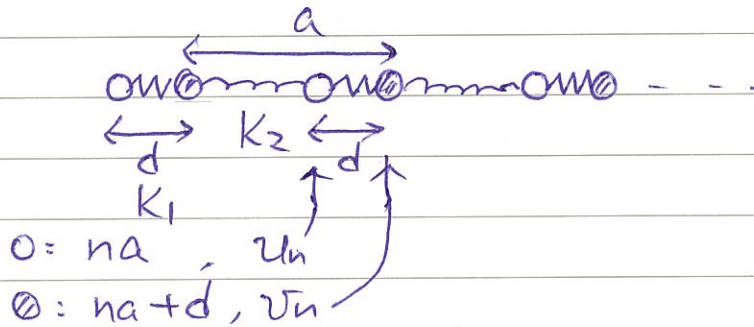 a
K₂
d d
K₁
O: na , un
⊘: na+d, vn